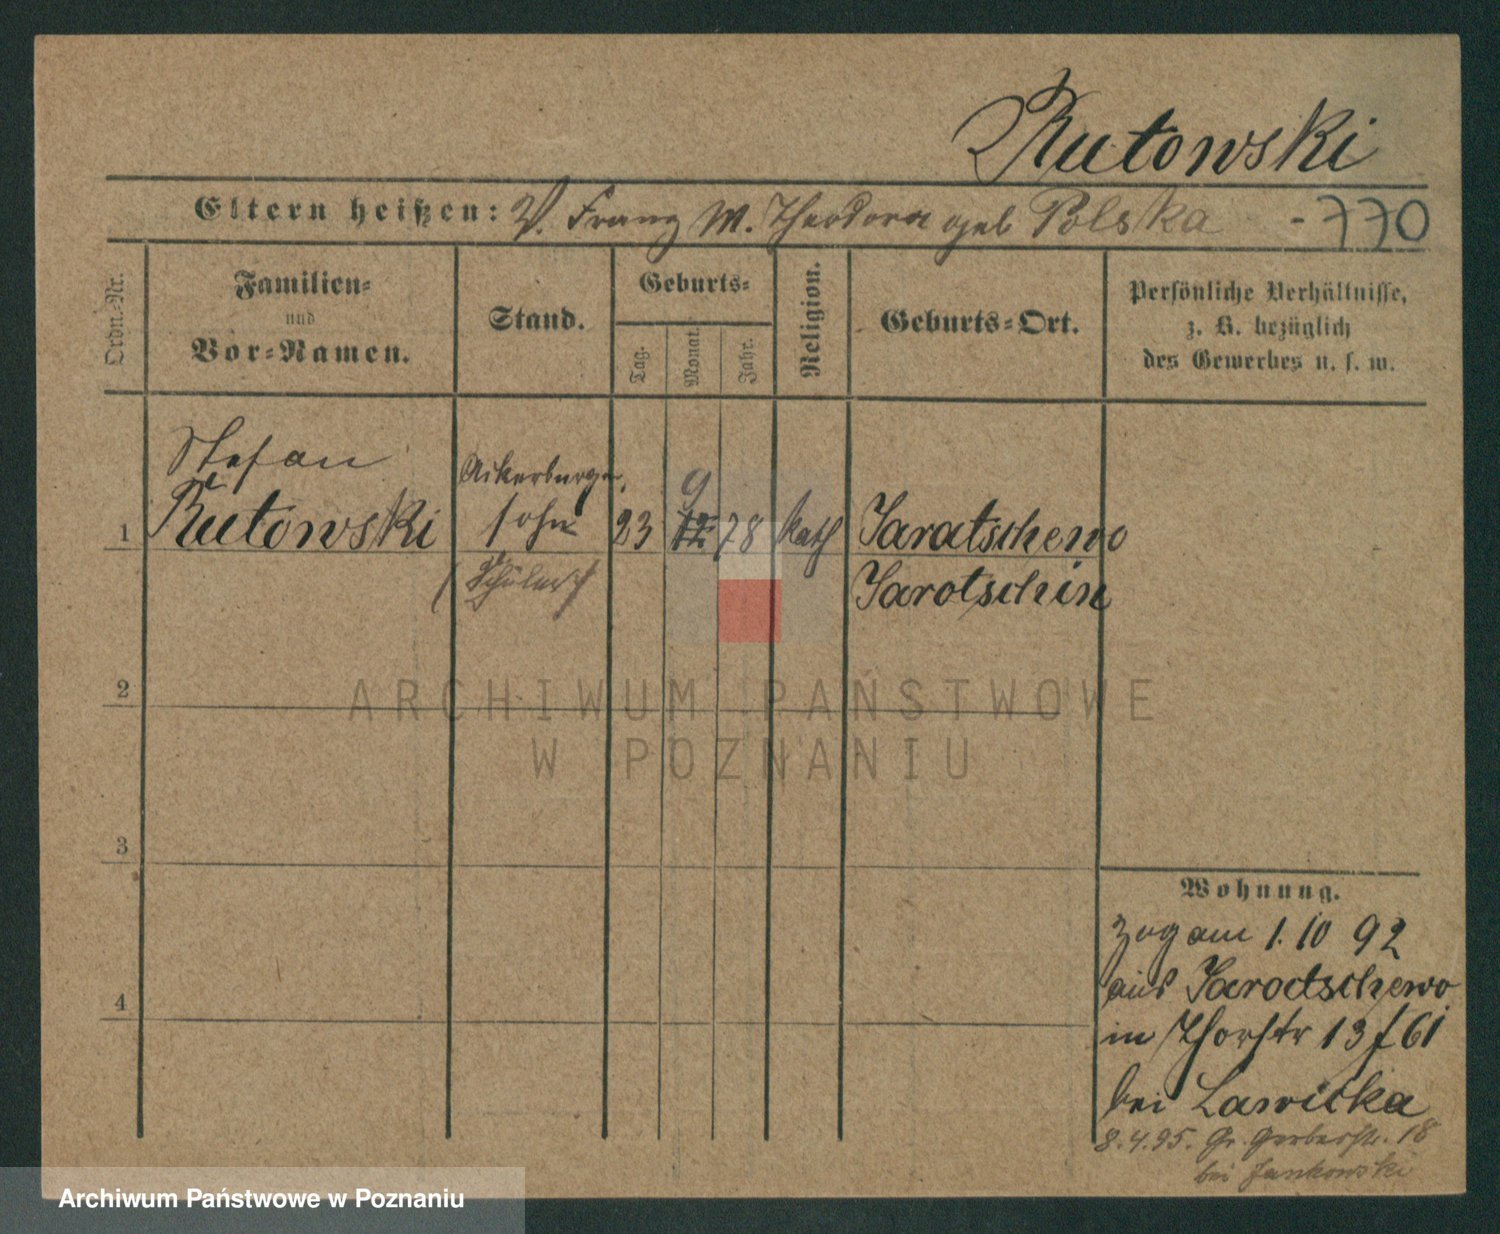 Rutowski
Eltern heißen: V. Franz M. Theodora geb Polska - 770
Ordn.-Nr.
Familien-
und
Vor-Namen.
Stand.
Geburts-
Tag.
Monat.
Jahr.
Religion.
Geburts-Ort.
Persönliche Verhältnisse,
z. B. bezüglich
des Gewerbes u. s. w.
Stefan
Ackerburger
9
1 Rutowski sohn 23 12 78 kath Jaratschewo
(Schüler)
Jarotschin
2
ARCHIWUM PAŃSTWOWE
W POZNANIU
3
Wohnung.
Zog am 1. 10 92
aus Jaratschewo
4
in Thorstr 13 f 61
bei Lawicka
8.4.95. Gr. Gerberstr. 18
bei Jankowski
Archiwum Państwowe w Poznaniu